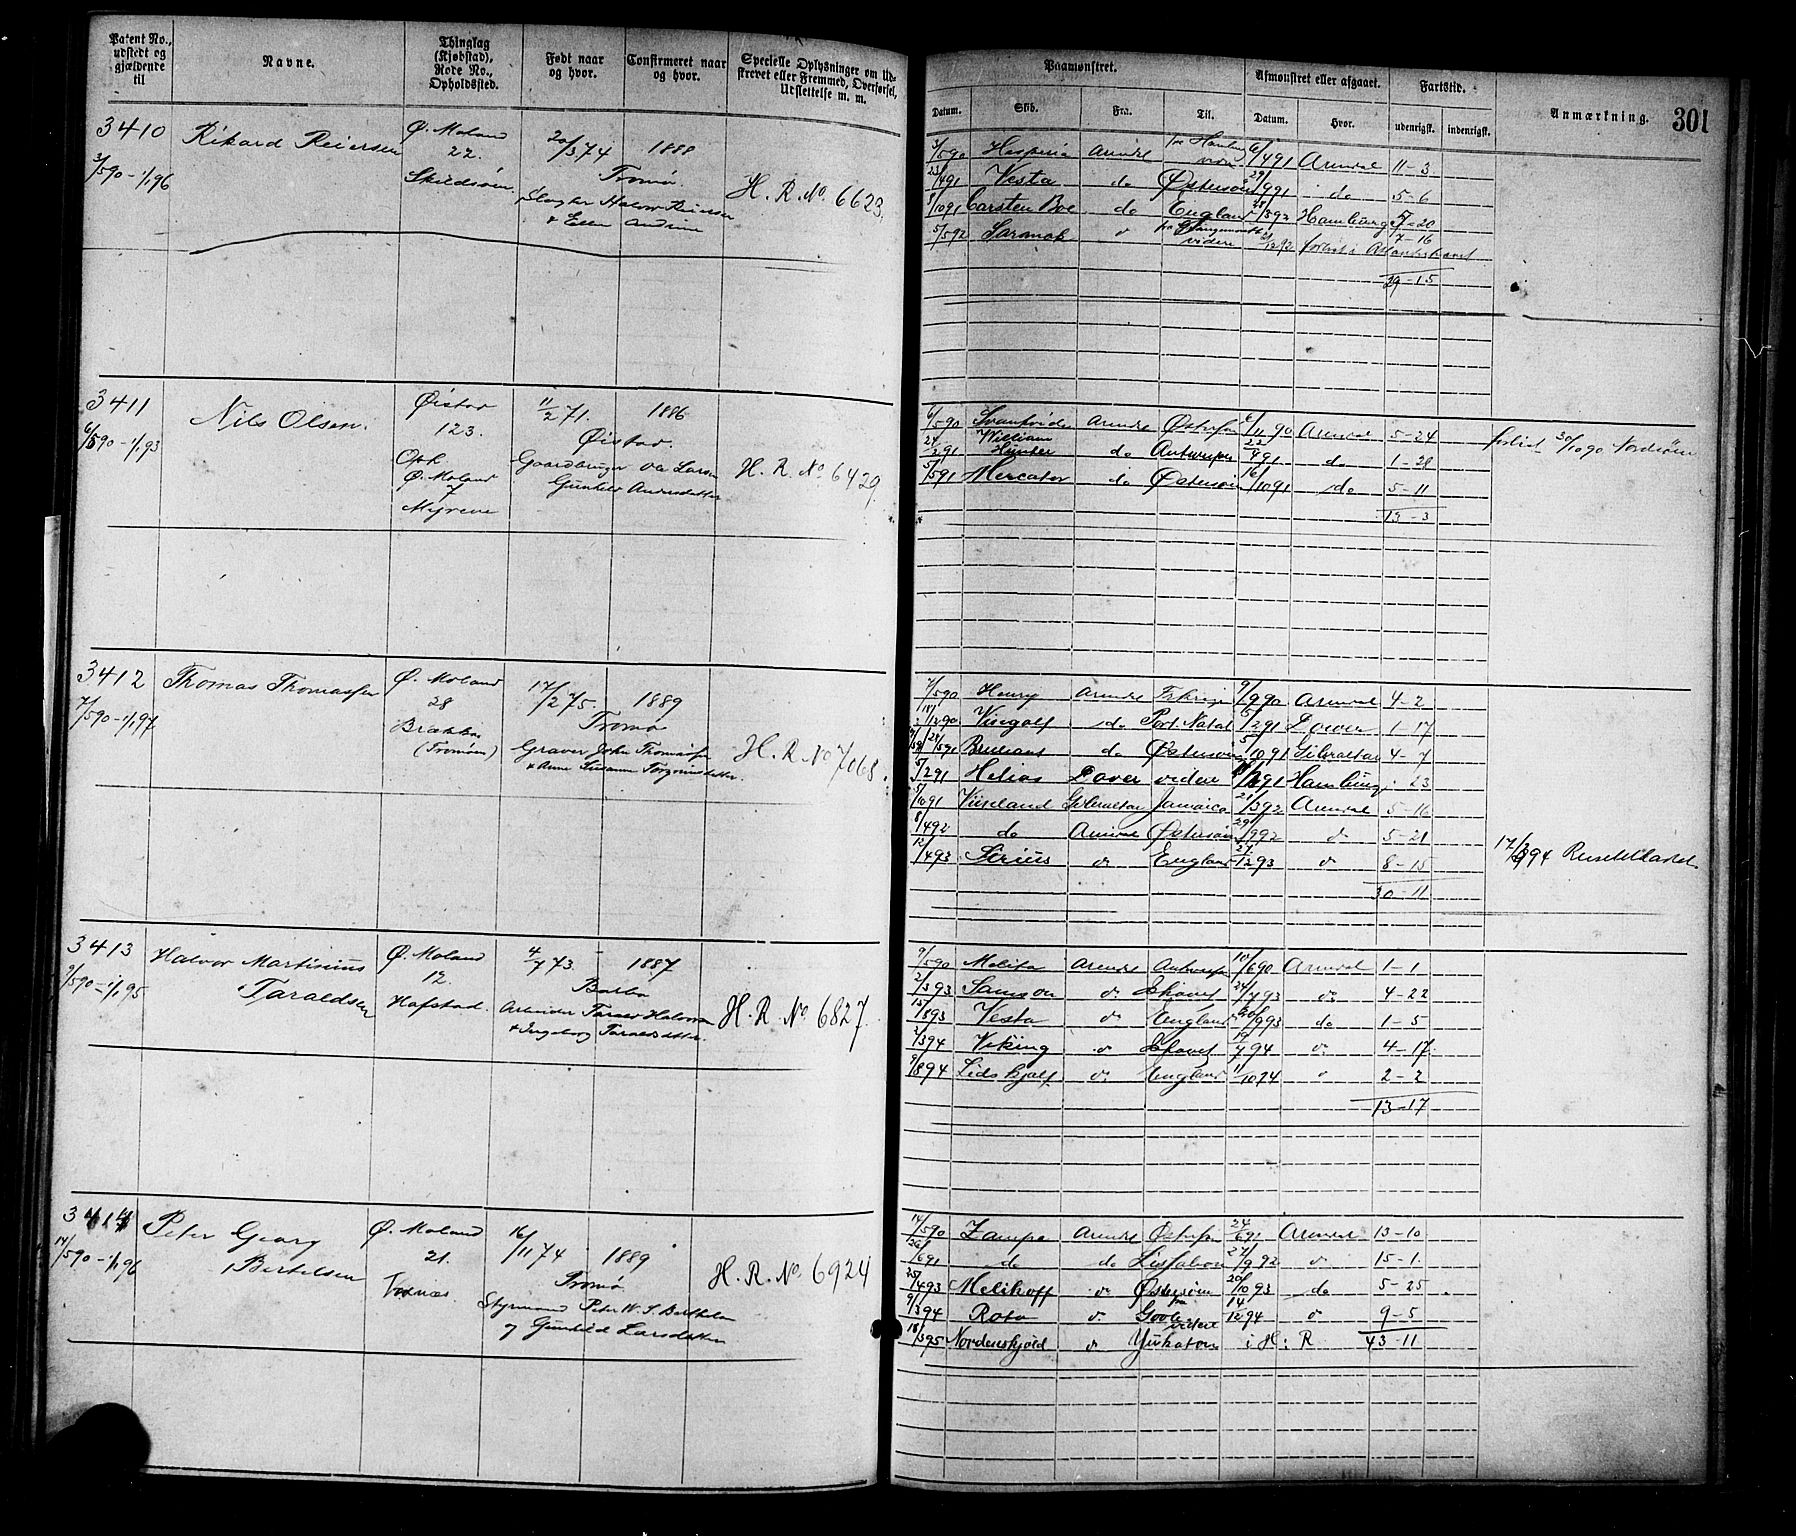 Patent No., udstedt og gjældende til
Navne.
Thinglag (Kjøbstad), Rode No., Opholdssted.
Født naar og hvor.
Confirmeret naar og hvor.
Specielle Oplysninger om Udskrevet eller Fremmed, Overførsel, Udslettelse m. m.
Paamønstret.
Afmønstret eller afgaaet.
Fartstid.
Anmærkning.
301
Datum. Skib. Fra. Til. Datum. Hvor. udenrigsk. indenrigsk.
3410 Rikard Reiersen Ø. Moland 20/3 74 1888
3/5 90 - 1/1 96 22. Tromø.
Skilsøen Halvor Reiersen H. R. No 6623.
& Ellen Andrine
3/5 90 Hesperia Arendl 6/4 91 Arendal 11-3
23/4 91 Vesta do Østersøen 29/9 91 do 5-6
8/10 91 Carsten Boe do England 28/3 92 Hamburg 5-20
5/5 92 Saramak videre 7-16
forlist i Atlanterhavet
29-15
3411 Nils Olsen. Øistad 11/2 71. 1886
6/5 90 - 1/1 93 123. Øistad.
Oph. Gaardbruger Ole Larsen H. R. No. 6429.
Ø. Moland Gunhild Andersdatter
7
Myrene
6/5 90 Svanhvide Arendl 6/11 90 Arendal 5-24 forlist 30/10 90 Nordsøen
24/2 91 William Hunter do Antwerpen 22/4 91 do 1-28
5/5 91 Mercator do Østersøen 16/10 91 do 5-11
13-3
3412 Thomas Thomassen Ø. Moland 17/2 75. 1889
7/5 90 - 1/1 97 28 Tromø
Brækken Graver John Thomassen H. R. No 7068.
(Tromøen) & Anne Susanne
7/5 90 Henry Arendl 9/9 90 Arendal 4-2
Visegolf do Port Natal 5/2 91 Dover 1-17
Brilliant do Østersøen 5/10 91 Gibraltar 4-7
5/2 91 Helios Dover videre Hamburg 23
5/10 91 Viseland Gibraltar Jamaica 21/3 92 Arendal 5-16
8/4 92 do Arendal Østersøen 29/9 92 do 5-21
12/4 93 Sirius do England 27/12 93 do 8-15
30-11
3413 Halvor Martinius Ø. Moland 4/7 73. 1887
9/5 90 - 1/1 95 Taraldsen 12. Barbo
Hafstad. Arbeider Tarald Halvorsen H. R. No 6827.
& Ingeborg Taraldsdatter.
9/5 90 Melita Arendl Antwerpen 10/6 90 Arendal 1-1
2/3 93 Samson do Ishavet 24/7 93 do 4-22
15/8 93 Vesta do England 20/9 93 do 1-5
2/3 94 Viking do Ishavet 19/7 94 do 4-17
9/8 94 Lidskjalf do England 11/10 94 do 2-2
13-17
3414 Peter Georg Ø. Moland 16/11 74 1889
14/5 90 - 1/1 96 Bertelsen 21. Tromø
Styrmand Peter W. S. Bertelsen H. R. No. 6924
og Gunhild Larsdatter
14/5 90 Zampa Arendl 24/6 91 Arendal 13-10
26/6 91 do do Lissabon 27/9 92 do 15-1.
25/4 93 Melikoff do Østersøen 20/10 93 do 5-25
9/3 94 Rota do Goole videre 14/12 94 do 9-5
18/3 95 Nordenskjold do Yukatan i H: R 43-11